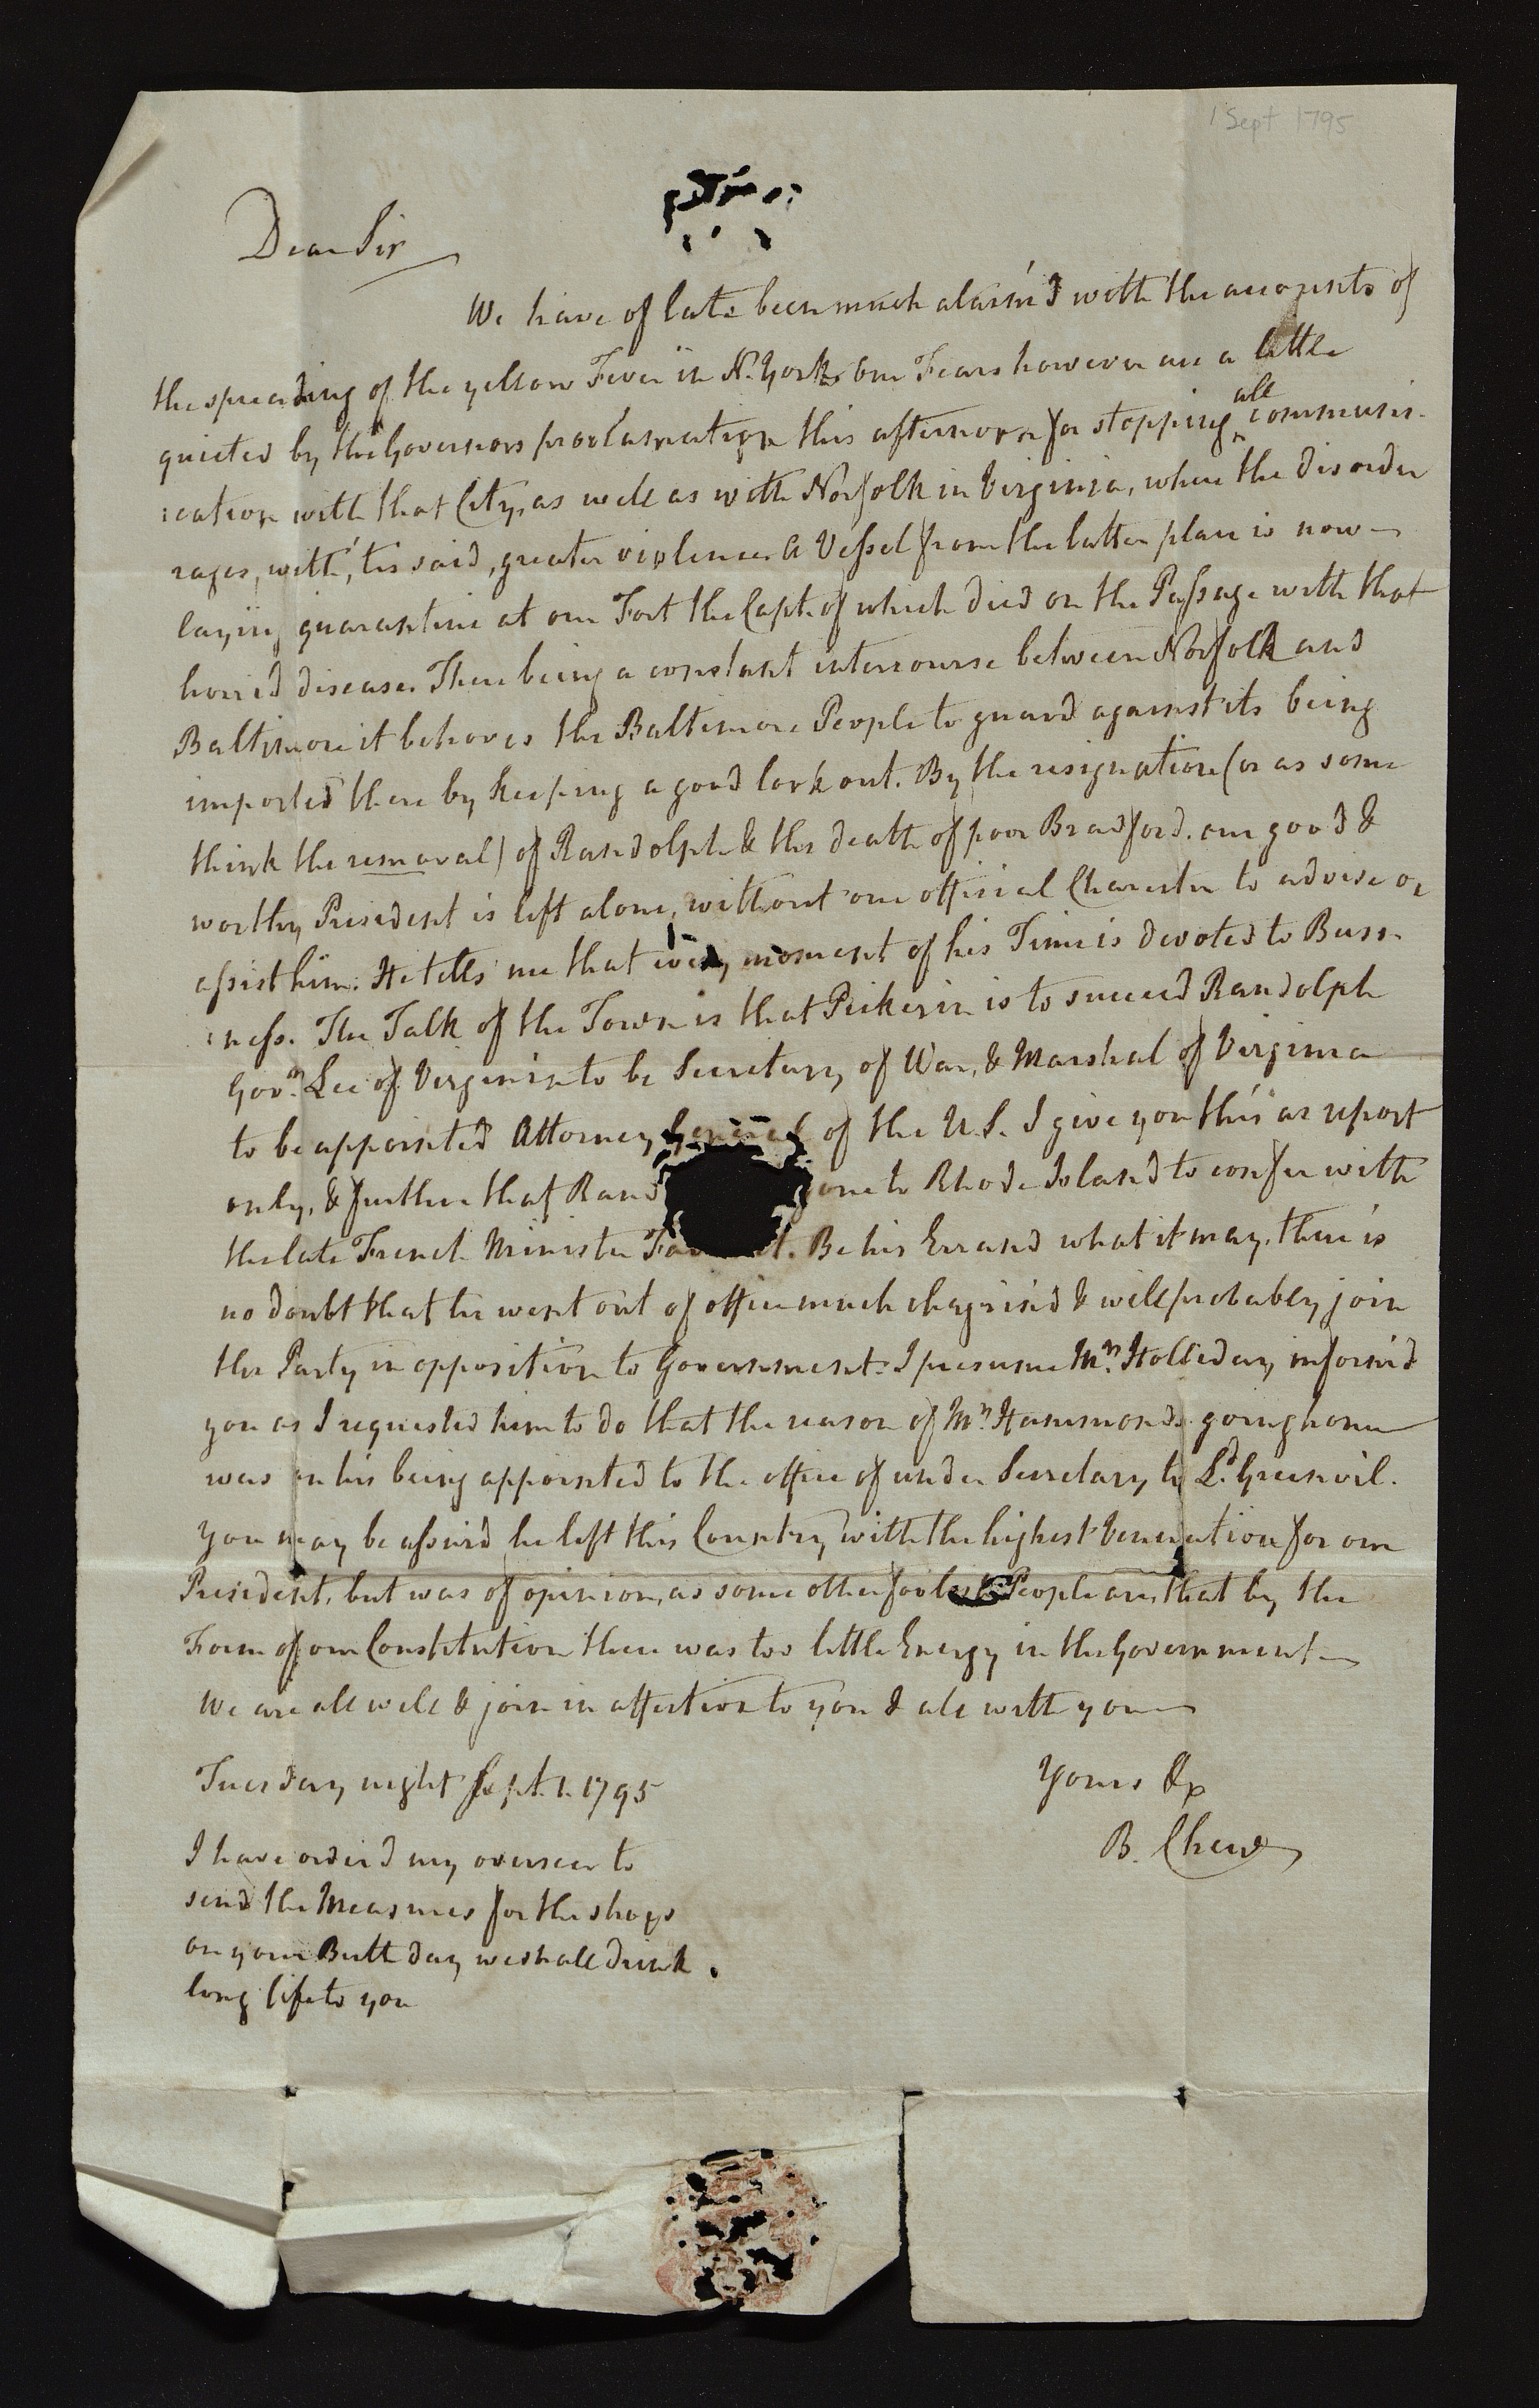 1 Sept 1795
Dear Sir
We have of late been much alarm'd with the accounts of
the spreading of the yellow Fever in N. York, our Fears however are a little
quieted by the Governors proclamation this afternoon for stopping all communi-
cation with that City, as well as with Norfolk in Virginia, where the disorder
rages, with, 'tis said, greater violence. A Vessel from the latter place is now
laying quarantine at our Fort the Capt. of which died on the Passage with that
horrid disease. There being a constant intercourse between Norfolk and
Baltimore it behoves the Baltimore People to guard against its being
imported there by keeping a good look out. By the resignation (or as some
think the removal) of Randolph & the death of poor Bradford. our good &
worthy President is left alone, without one official Character to advise or
assist him. He tells me that every moment of his Time is devoted to Busi-
ness. The Talk of the Town is that Pickerin is to succeed Randolph
Govr. Lee of Virginia to be Secretary of War, & Marshal of Virginia
to be appointed Attorney General of the U.S. I give you this as report
only, & further that Rand gone to Rhode Island to confer with
the late French Minister Fau t. Be his Errand what it may, there is
no doubt that he went out of office much chagrin'd & will probably join
the Party in opposition to Government. I presume Mr. Holliday inform'd
you as I requested him to do that the reason of Mr. Hammonds going home
was on his being appointed to the office of under Secretary to Ld. Greenvil.
You may be assur'd he left this Country with the highest Veneration for our
President, but was of opinion, as some other foolish People are, that by the
Form of our Constitution there was too little Energy in the Government
We are all well & join in affection to you & all with you
Tuesday night Sept. 1. 1795
Yours &c
B. Chew
I have order'd my overseer to
send the Measures for the shoes
on your Birth day we shall drink
long life to you